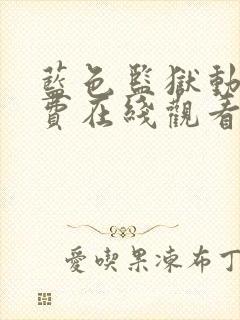 藍色監獄動
費在綫觀看
愛喫果凍布丁